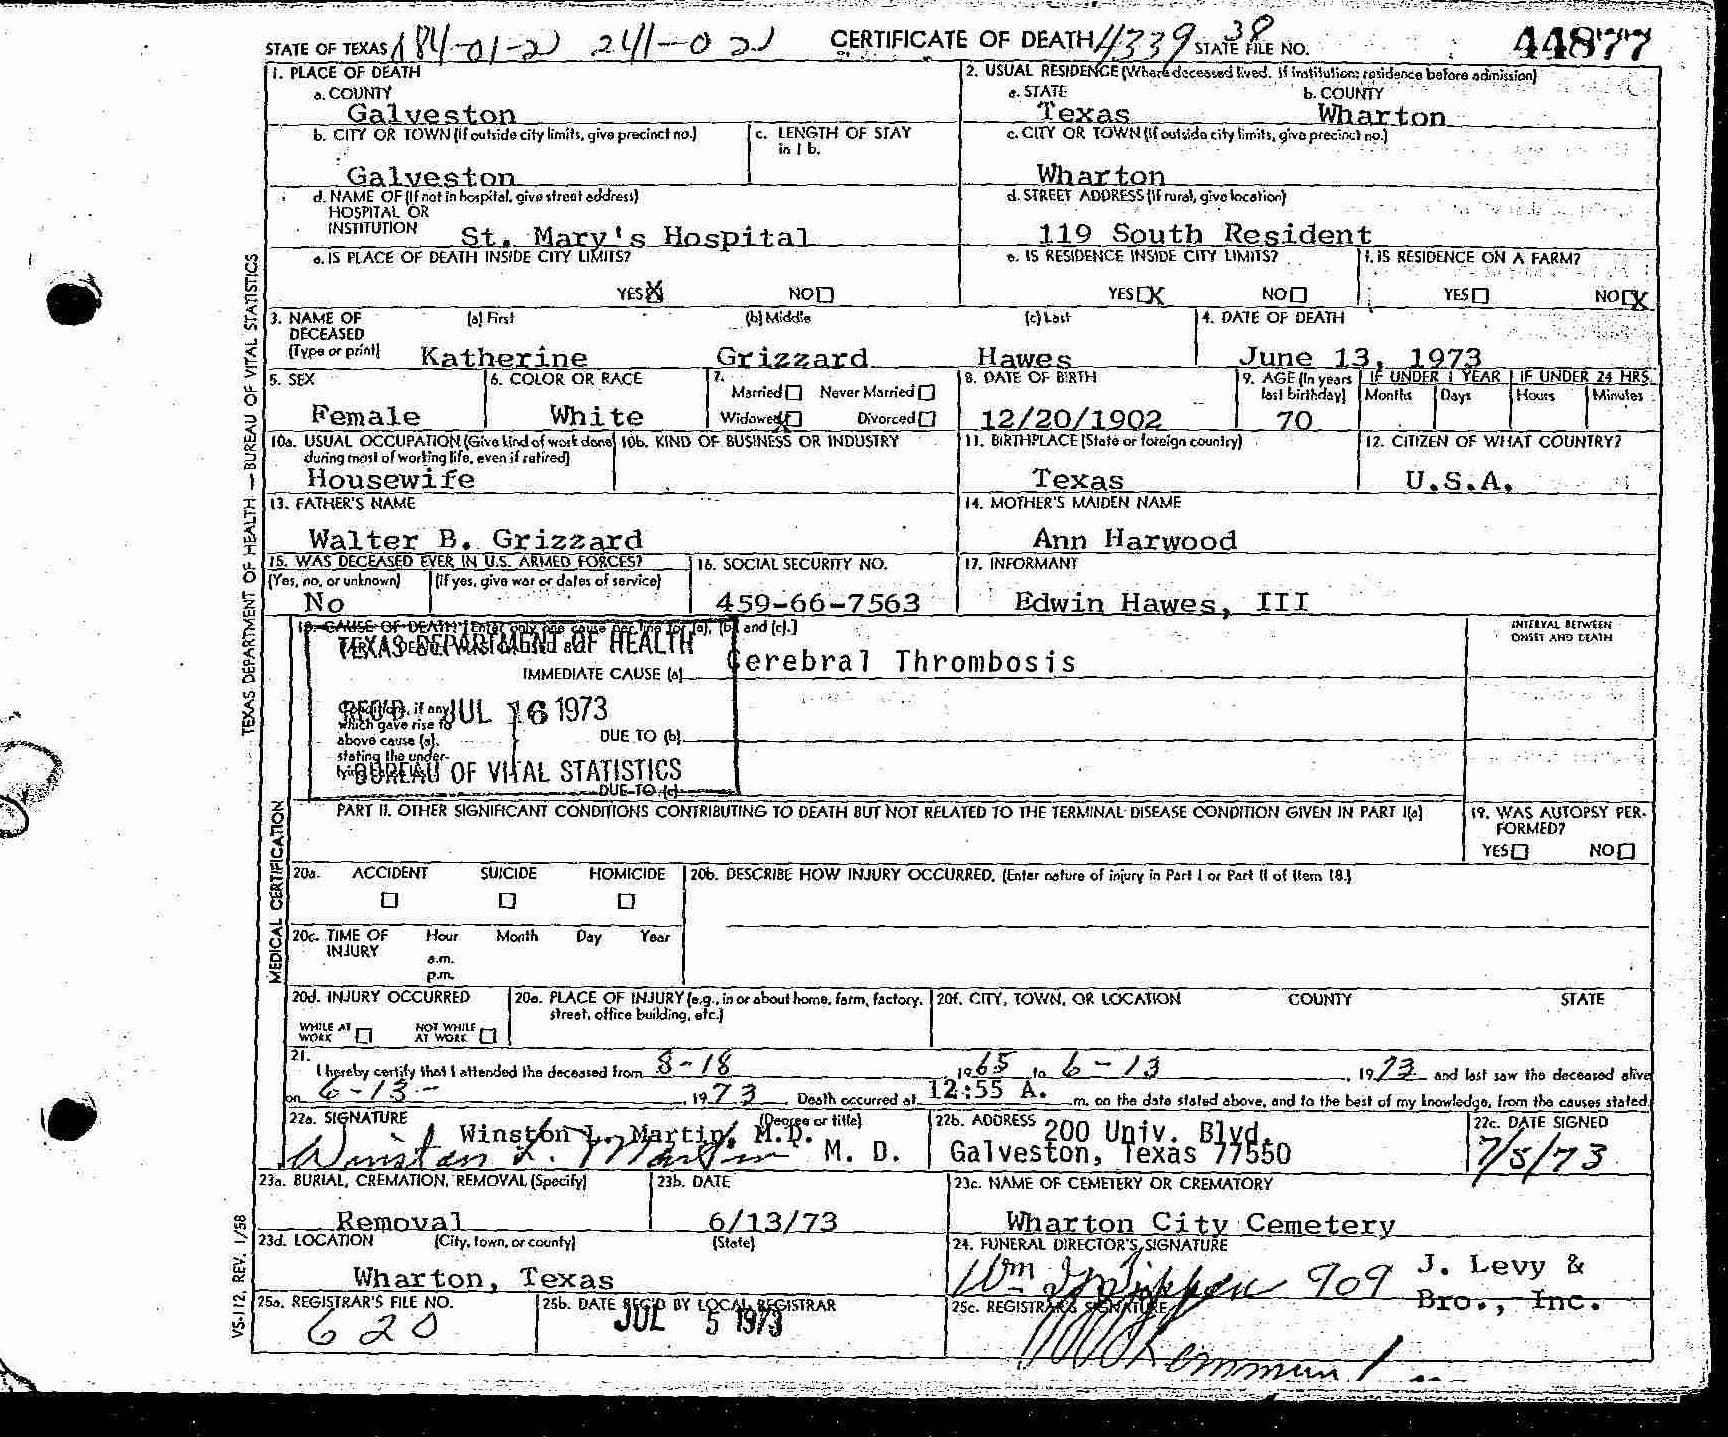 STATE OF TEXAS 184-01-2 241-02 CERTIFICATE OF DEATH 4339 38 STATE FILE NO. 44877
1. PLACE OF DEATH
a. COUNTY
Galveston
2. USUAL RESIDENCE (Where deceased lived. If institution: residence before admission)
a. STATE b. COUNTY
Texas Wharton
b. CITY OR TOWN (If outside city limits, give precinct no.)
Galveston
c. LENGTH OF STAY
in 1 b.
c. CITY OR TOWN (If outside city limits, give precinct no.)
Wharton
d. NAME OF (If not in hospital, give street address)
HOSPITAL OR
INSTITUTION St. Mary's Hospital
d. STREET ADDRESS (If rural, give location)
119 South Resident
e. IS PLACE OF DEATH INSIDE CITY LIMITS?
YES X NO
e. IS RESIDENCE INSIDE CITY LIMITS?
YES X NO
f. IS RESIDENCE ON A FARM?
YES NO X
3. NAME OF (a) First (b) Middle (c) Last
DECEASED
(Type or print) Katherine Grizzard Hawes
4. DATE OF DEATH
June 13, 1973
5. SEX
Female
6. COLOR OR RACE
White
7.
Married Never Married
Widowed X Divorced
8. DATE OF BIRTH
12/20/1902
9. AGE (In years
last birthday)
70
IF UNDER 1 YEAR IF UNDER 24 HRS.
Months Days Hours Minutes
10a. USUAL OCCUPATION (Give kind of work done
during most of working life, even if retired)
Housewife
10b. KIND OF BUSINESS OR INDUSTRY
11. BIRTHPLACE (State or foreign country)
Texas
12. CITIZEN OF WHAT COUNTRY?
U.S.A.
13. FATHER'S NAME
Walter B. Grizzard
14. MOTHER'S MAIDEN NAME
Ann Harwood
15. WAS DECEASED EVER IN U.S. ARMED FORCES?
(Yes, no, or unknown) (If yes, give war or dates of service)
No
16. SOCIAL SECURITY NO.
459-66-7563
17. INFORMANT
Edwin Hawes, III
18. CAUSE OF DEATH [Enter only one cause per line for (a), (b) and (c).]
INTERVAL BETWEEN
ONSET AND DEATH
TEXAS DEPARTMENT OF HEALTH
IMMEDIATE CAUSE (a) Cerebral Thrombosis
REC'D JUL 16 1973
Conditions, if any
which gave rise to
above cause (a),
stating the under-
DUE TO (b)
BUREAU OF VITAL STATISTICS
DUE TO (c)
PART II. OTHER SIGNIFICANT CONDITIONS CONTRIBUTING TO DEATH BUT NOT RELATED TO THE TERMINAL DISEASE CONDITION GIVEN IN PART I(a)
19. WAS AUTOPSY PER-
FORMED?
YES NO
20a. ACCIDENT SUICIDE HOMICIDE
20b. DESCRIBE HOW INJURY OCCURRED. (Enter nature of injury in Part I or Part II of item 18.)
20c. TIME OF Hour Month Day Year
INJURY
a.m.
p.m.
20d. INJURY OCCURRED
WHILE AT
WORK
NOT WHILE
AT WORK
20e. PLACE OF INJURY (e.g., in or about home, farm, factory,
street, office building, etc.)
20f. CITY, TOWN, OR LOCATION COUNTY STATE
21.
I hereby certify that I attended the deceased from 8-18, 1965 to 6-13, 1973 and last saw the deceased alive
on 6-13-, 1973. Death occurred at 12:55 A. m. on the date stated above, and to the best of my knowledge, from the causes stated.
22a. SIGNATURE (Degree or title)
Winston L. Martin, M.D.
Winston L. Martin M. D.
22b. ADDRESS 200 Univ. Blvd.
Galveston, Texas 77550
22c. DATE SIGNED
7/5/73
23a. BURIAL, CREMATION, REMOVAL (Specify)
Removal
23b. DATE
6/13/73
23c. NAME OF CEMETERY OR CREMATORY
Wharton City Cemetery
23d. LOCATION (City, town, or county) (State)
Wharton, Texas
24. FUNERAL DIRECTOR'S SIGNATURE
909 J. Levy &
Bro., Inc.
25a. REGISTRAR'S FILE NO.
620
25b. DATE REC'D BY LOCAL REGISTRAR
JUL 5 1973
25c. REGISTRAR'S SIGNATURE
TEXAS DEPARTMENT OF HEALTH — BUREAU OF VITAL STATISTICS
MEDICAL CERTIFICATION
VS-112, REV. 1/58